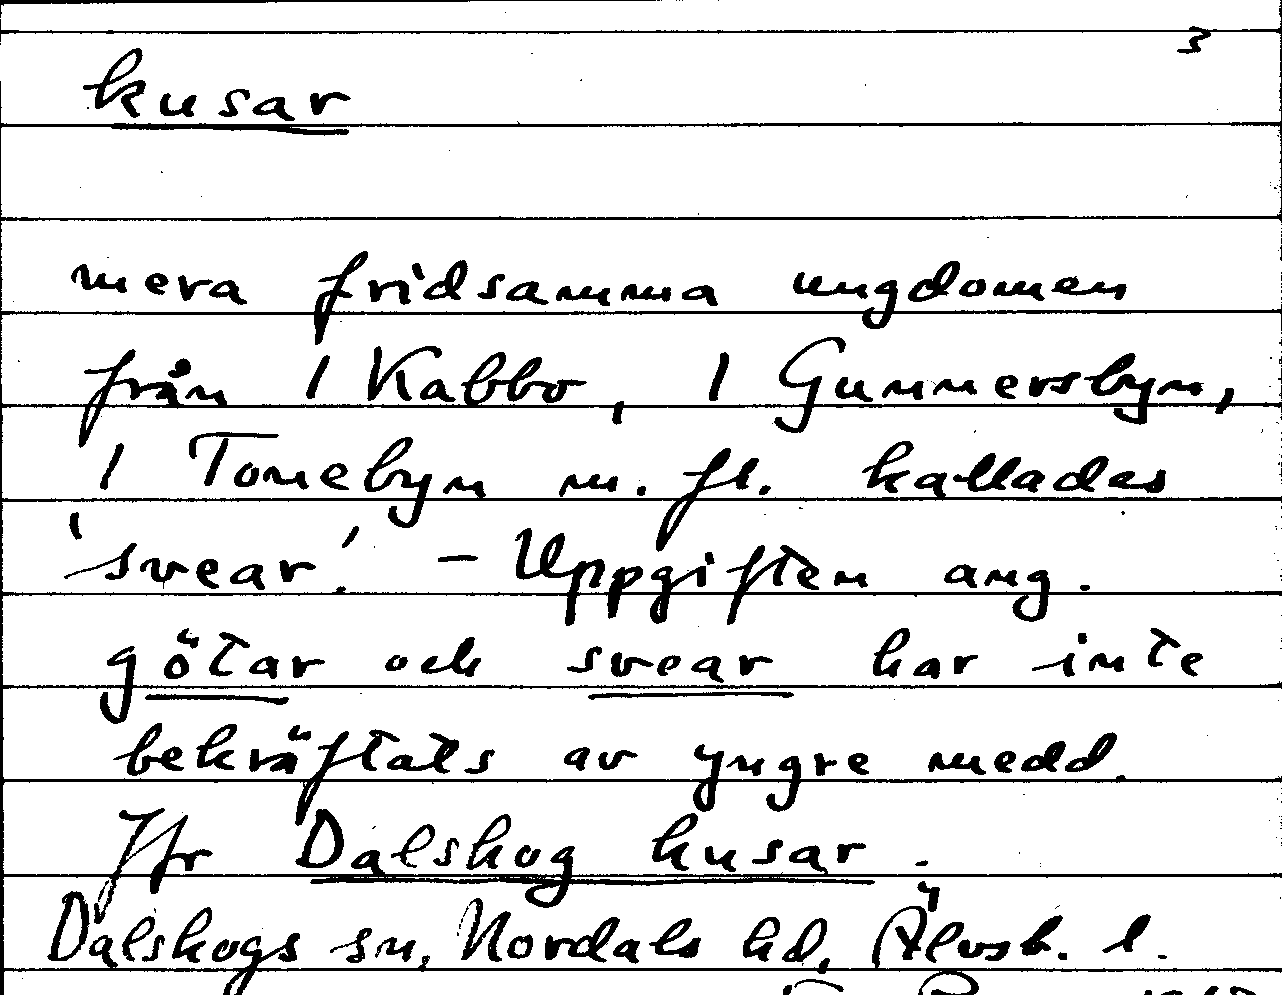 3
kusar
mera fridsamma ungdomen
från / Kabbo, / Gunnersbyn,
/ Tonebyn m. fl. kallades
'svear'. - Uppgiften ang.
götar och svear har inte
bekräftats av yngre medd.
Jfr Dalskog kusar.
Dalskogs sn, Nordals hd, Älvsb. l.